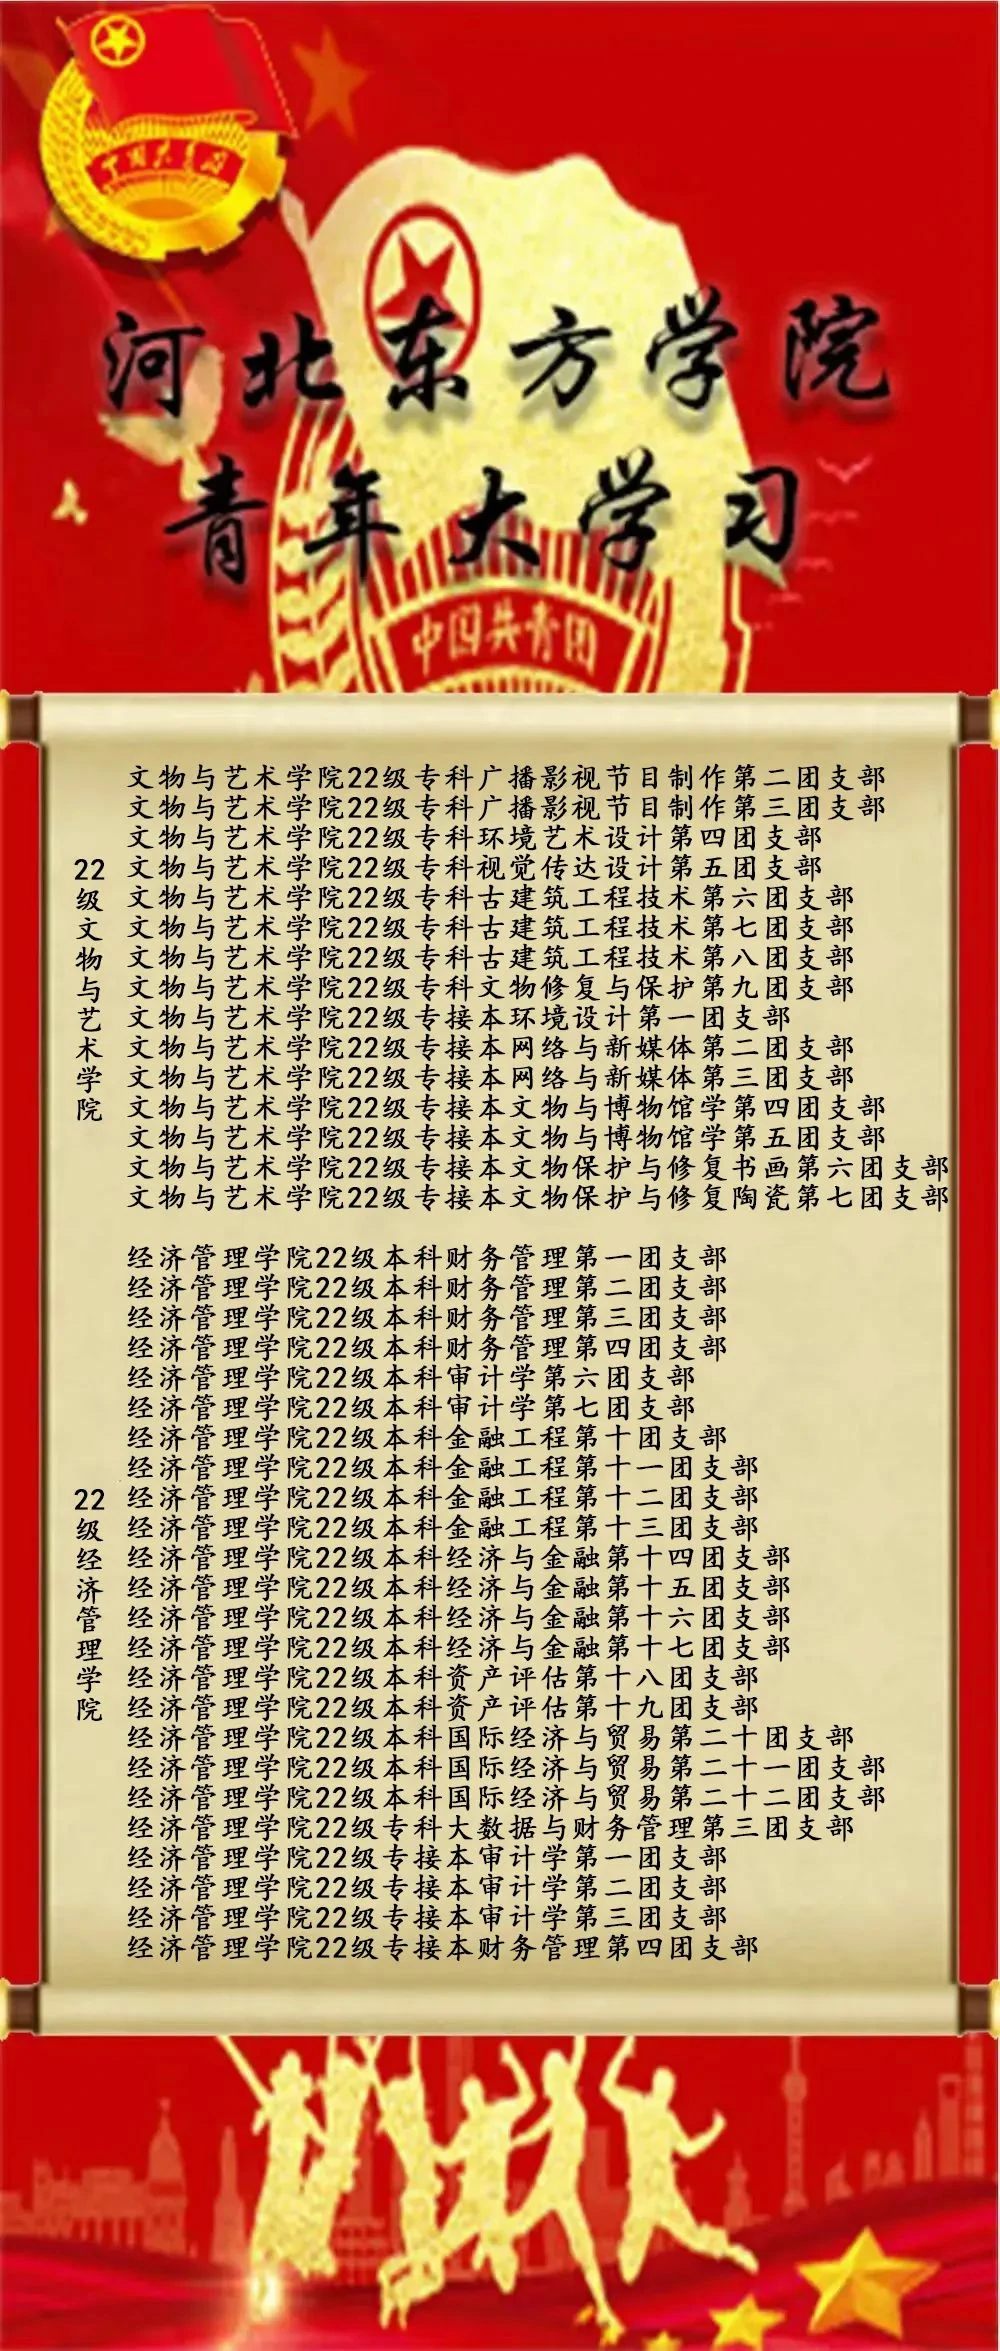 中国共青团
河北东方学院
青年大学习
中国共青团
22级文物与艺术学院
文物与艺术学院22级专科广播影视节目制作第二团支部
文物与艺术学院22级专科广播影视节目制作第三团支部
文物与艺术学院22级专科环境艺术设计第四团支部
文物与艺术学院22级专科视觉传达设计第五团支部
文物与艺术学院22级专科古建筑工程技术第六团支部
文物与艺术学院22级专科古建筑工程技术第七团支部
文物与艺术学院22级专科古建筑工程技术第八团支部
文物与艺术学院22级专科文物修复与保护第九团支部
文物与艺术学院22级专接本环境设计第一团支部
文物与艺术学院22级专接本网络与新媒体第二团支部
文物与艺术学院22级专接本网络与新媒体第三团支部
文物与艺术学院22级专接本文物与博物馆学第四团支部
文物与艺术学院22级专接本文物与博物馆学第五团支部
文物与艺术学院22级专接本文物保护与修复书画第六团支部
文物与艺术学院22级专接本文物保护与修复陶瓷第七团支部
22级经济管理学院
经济管理学院22级本科财务管理第一团支部
经济管理学院22级本科财务管理第二团支部
经济管理学院22级本科财务管理第三团支部
经济管理学院22级本科财务管理第四团支部
经济管理学院22级本科审计学第六团支部
经济管理学院22级本科审计学第七团支部
经济管理学院22级本科金融工程第十团支部
经济管理学院22级本科金融工程第十一团支部
经济管理学院22级本科金融工程第十二团支部
经济管理学院22级本科金融工程第十三团支部
经济管理学院22级本科经济与金融第十四团支部
经济管理学院22级本科经济与金融第十五团支部
经济管理学院22级本科经济与金融第十六团支部
经济管理学院22级本科经济与金融第十七团支部
经济管理学院22级本科资产评估第十八团支部
经济管理学院22级本科资产评估第十九团支部
经济管理学院22级本科国际经济与贸易第二十团支部
经济管理学院22级本科国际经济与贸易第二十一团支部
经济管理学院22级本科国际经济与贸易第二十二团支部
经济管理学院22级专科大数据与财务管理第三团支部
经济管理学院22级专接本审计学第一团支部
经济管理学院22级专接本审计学第二团支部
经济管理学院22级专接本审计学第三团支部
经济管理学院22级专接本财务管理第四团支部